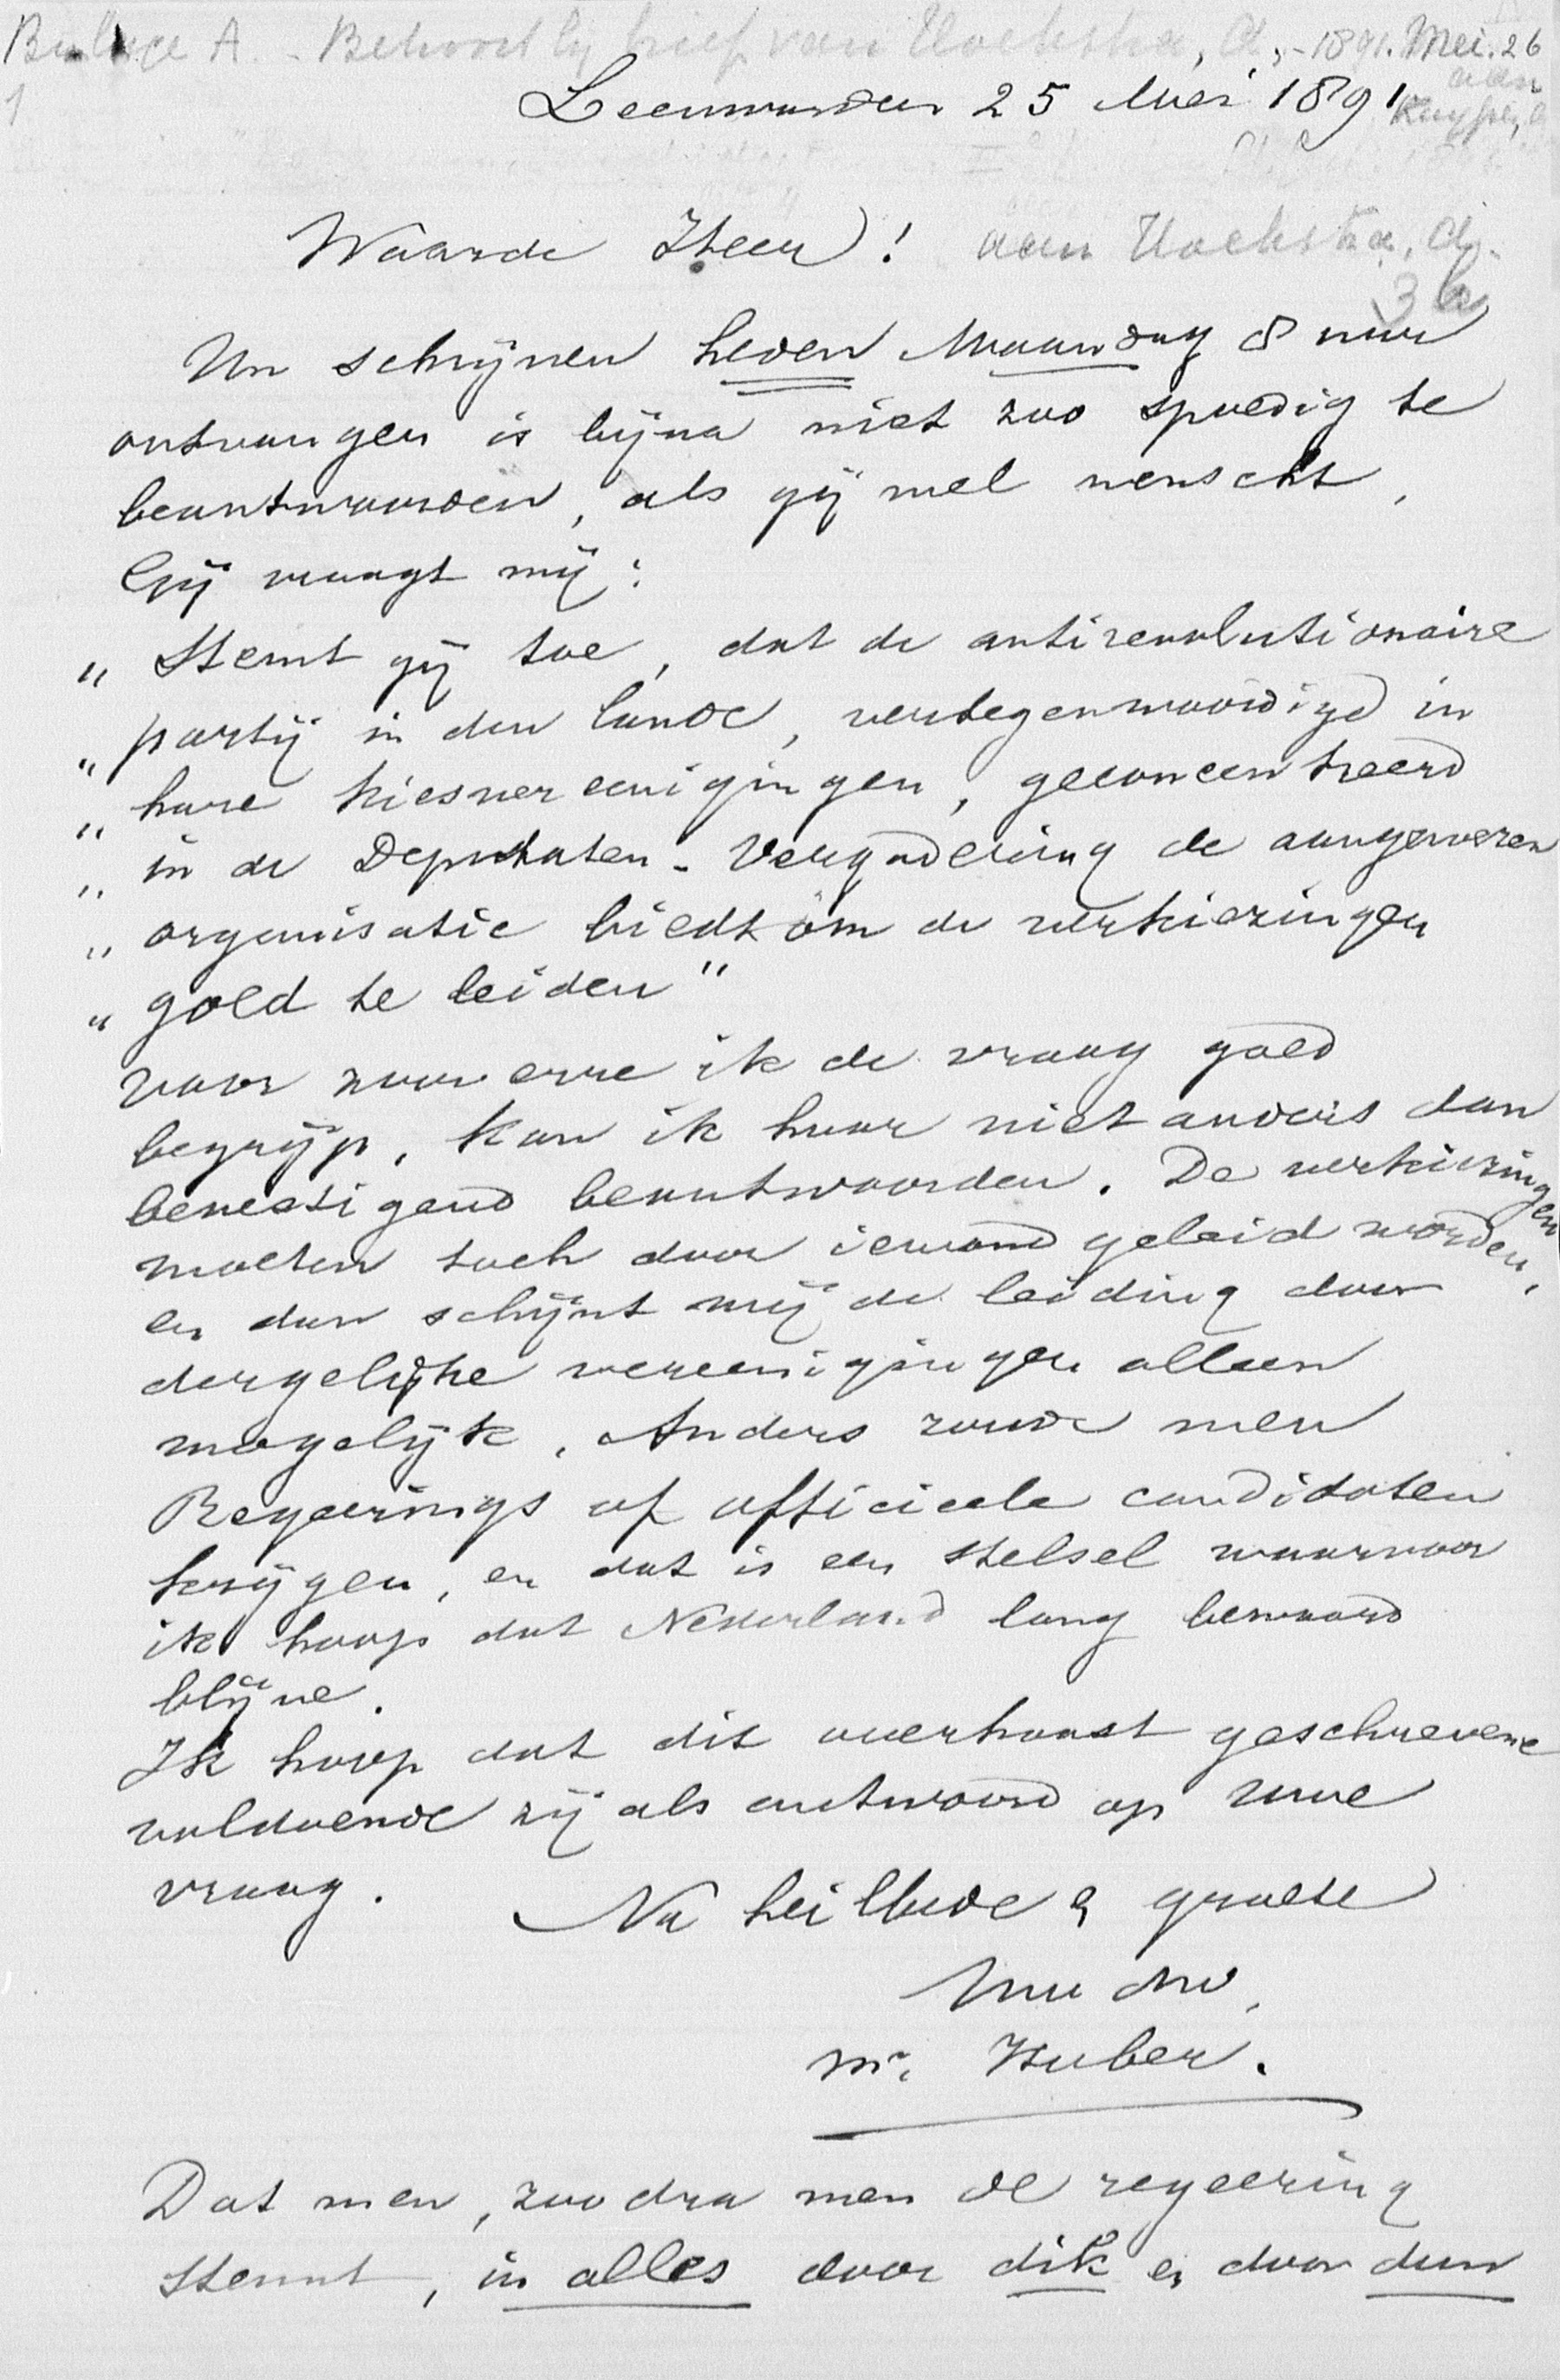 Bijlage A. - Behoort bij brief van Hoekstra, Cl., - 1891. Mei. 26
1
van
Leeuwarden 25 Mei 1891 Kuyper, A
Waarde Heer! aan Hoekstra, Cl.
3 a
Uw schrijven heden Maandag 8 uur
ontvangen is bijna niet zoo spoedig te
beantwoorden, als gij wel wenscht.
Gij vraagt mij:
„ Stemt gij toe, dat de antirevolutionaire
„ partij in den lande, vertegenwoordigd in
„ hare kiesvereenigingen, geconcentreerd
„ in de Deputaten-Vergadering de aangewezen
„ organisatie biedt om de verkiezingen
„ goed te leiden"
Voor zoover ik de vraag goed
begrijp, kan ik haar niet anders dan
bevestigend beantwoorden. De verkiezingen
moeten toch door iemand geleid worden,
en dan schijnt mij de leiding door
dergelijke vereenigingen alleen
mogelijk. Anders zoude men
Regeerings of officieele candidaten
krijgen, en dat is een stelsel waarvoor
ik hoop dat Nederland lang bewaard
blijve.
Ik hoop dat dit overhaast geschrevene
voldoende zij als antwoord op uwe
vraag.
Na heilbede & groete
Uw dw.
Mr. Huber.
Dat men, zoodra men de regeering
steunt, in alles door dik en door dun